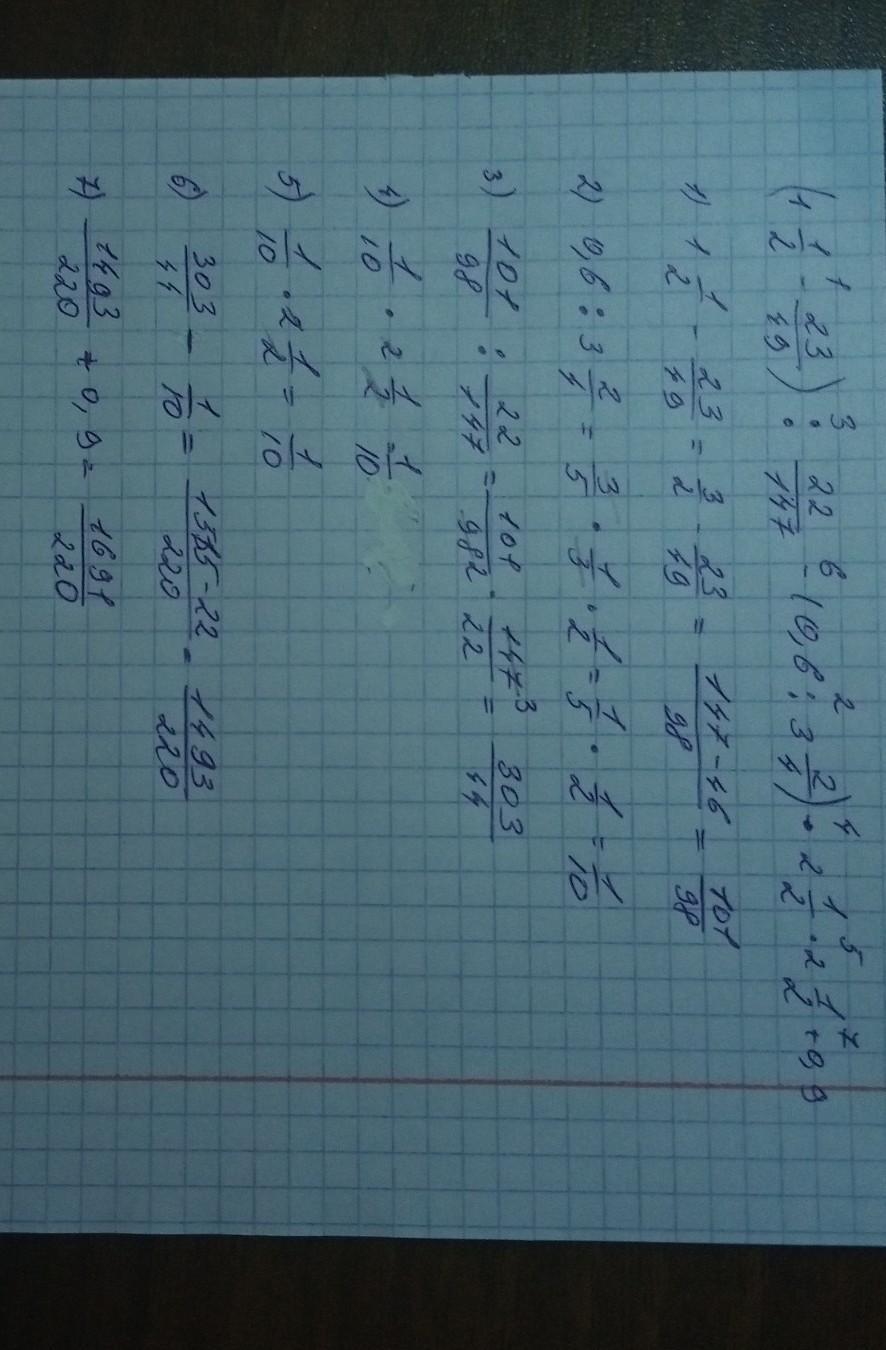 (1 1/2 -¹ 23/49) :³ 22/147 -⁶ (0,6 :² 3 2/4) •⁴ 2 1/2 ·⁵ 2 1/2 +⁷ 0,9
1) 1 1/2 - 23/49 = 3/2 - 23/49 = (147-46)/98 = 101/98
2) 0,6 : 3 2/4 = 3/5 · 1/3 · 1/2 = 1/5 · 1/2 = 1/10
3) 101/98 : 22/147 = 101/98 2 · 147 3/22 = 303/44
4) 1/10 · 2 1/2 1/10
5) 1/10 · 2 1/2 = 1/10
6) 303/44 - 1/10 = (1515-22)/220 = 1493/220
7) 1493/220 + 0,9 = 1691/220